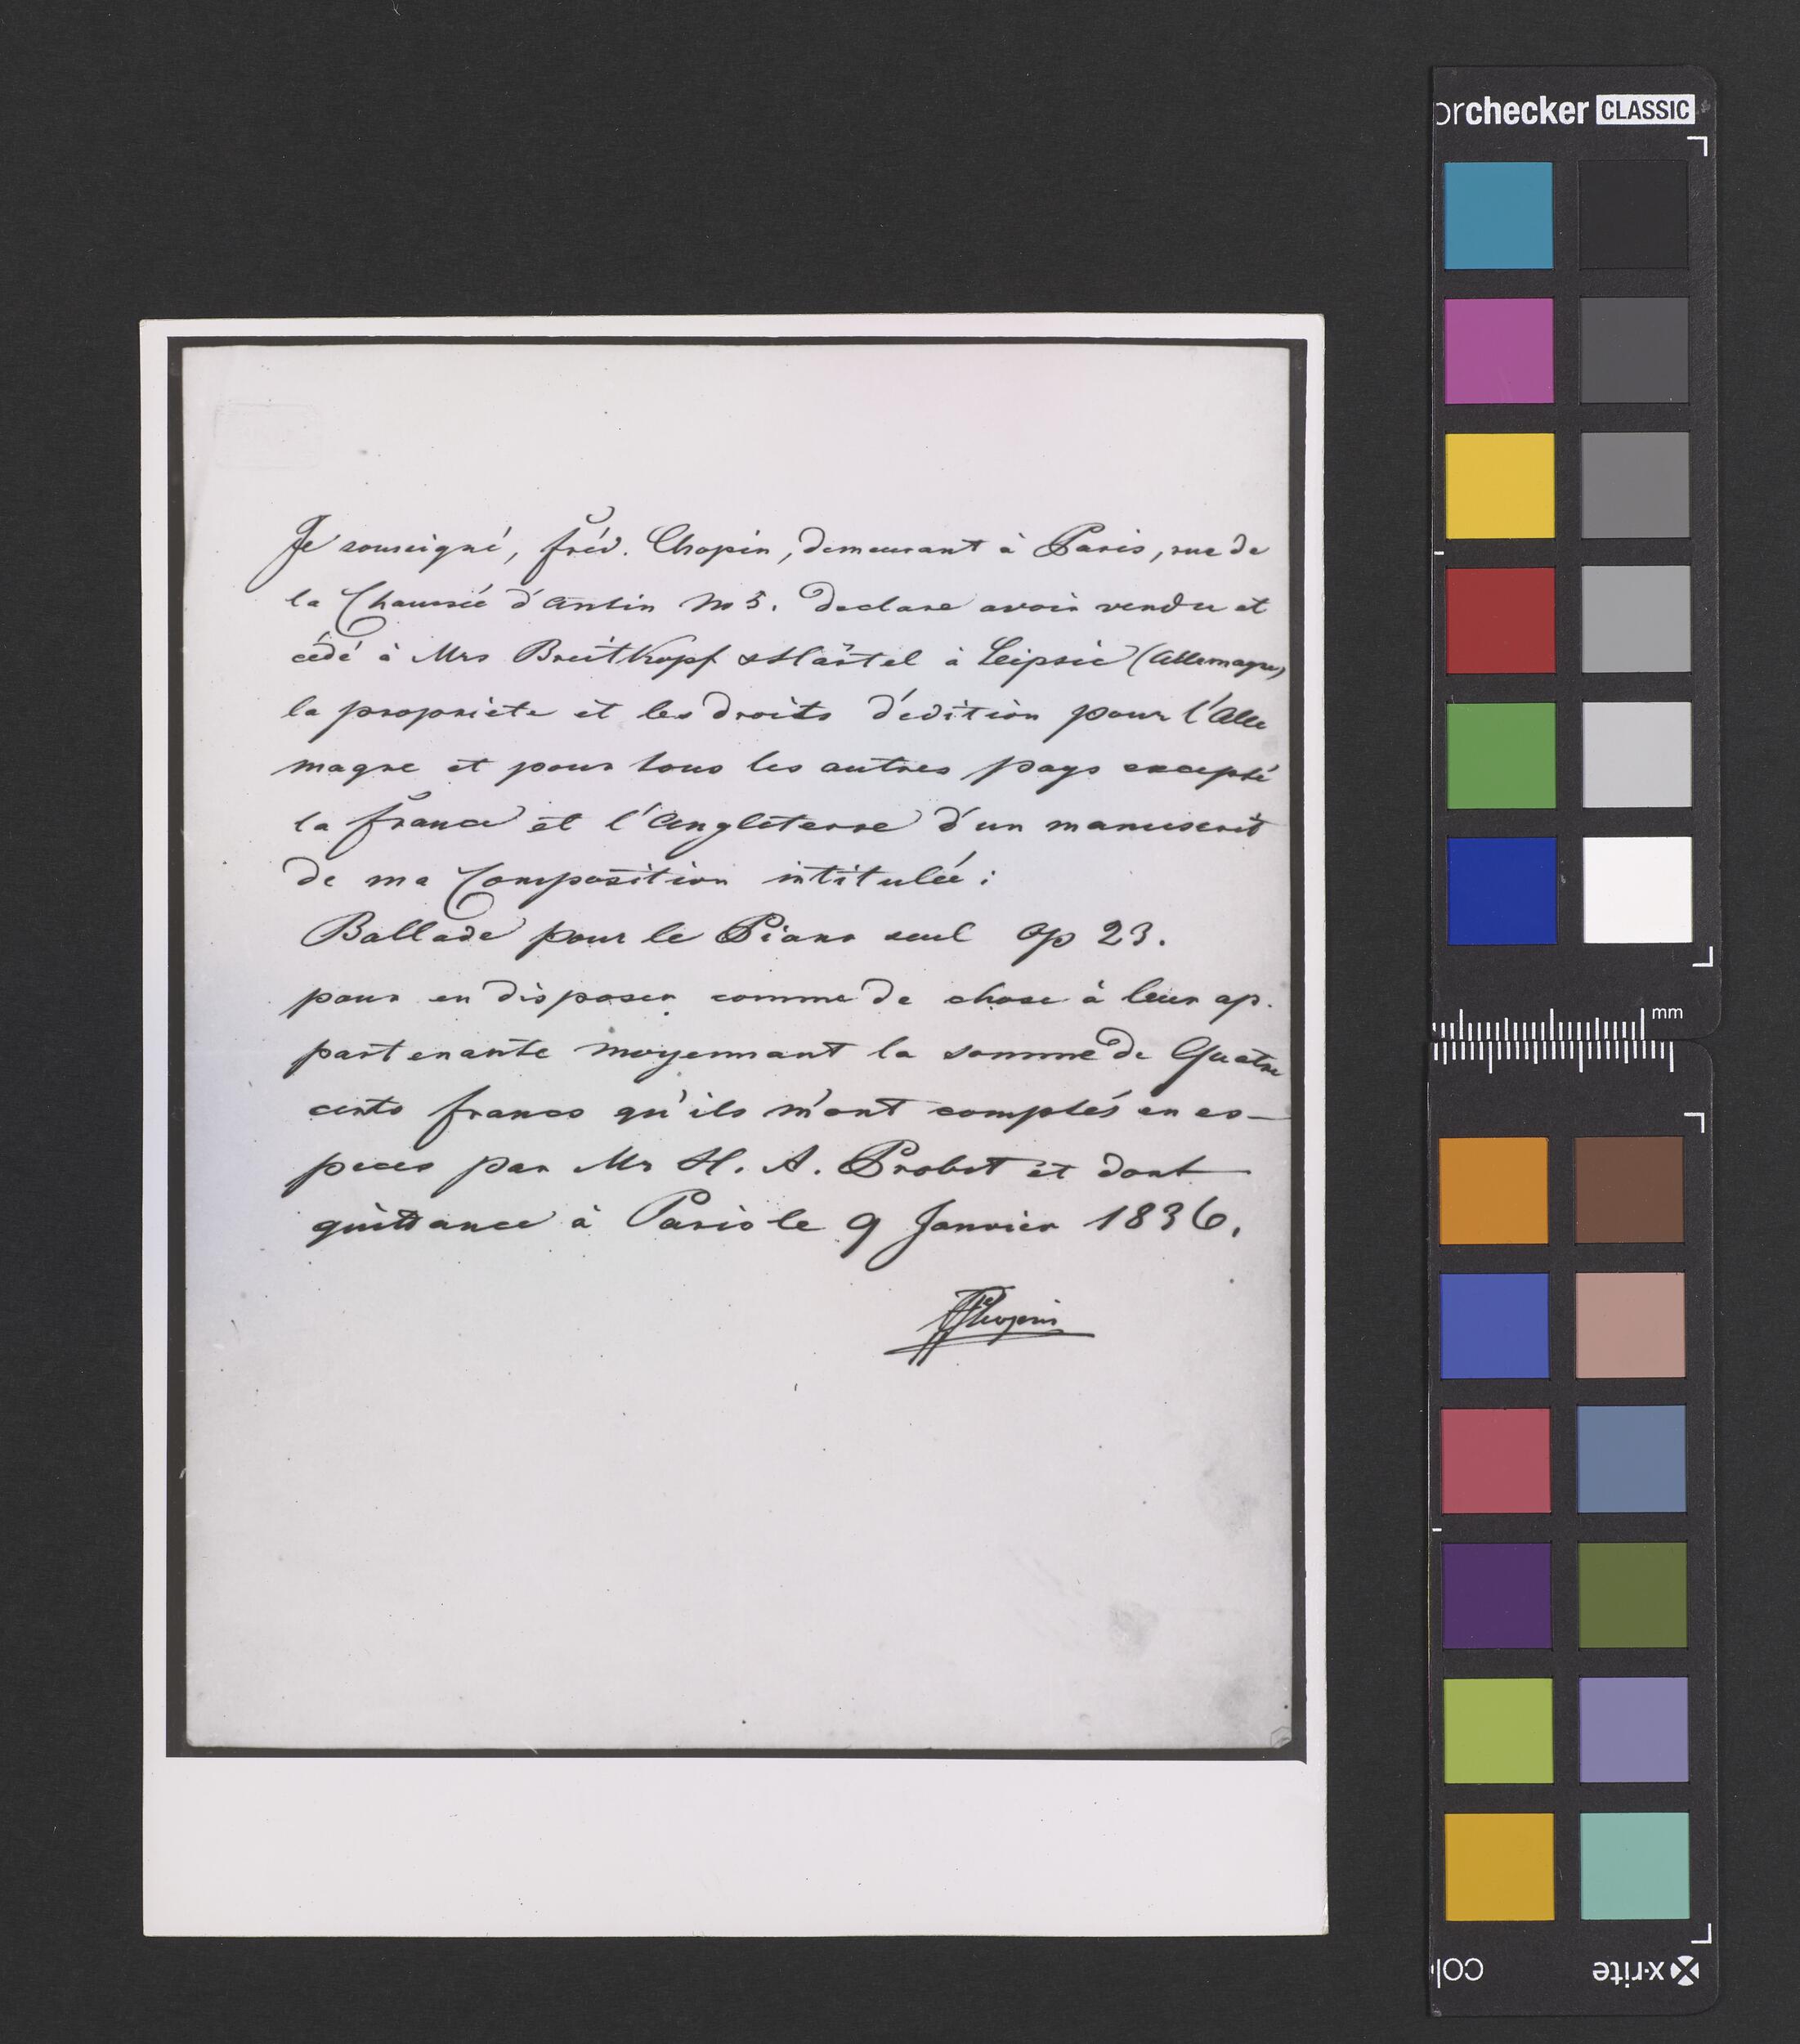 Je souseigné, Fréd. Chopin, demeurant à Paris, rue de
la Chaussée d'Antin No 5. declare avoir vendu et
cédé à Mrs Breitkopf & Härtel à Leipsic (Allemagne)
la propriete et les droits d'édition pour l'Alle
magne et pour tous les autres pays excepté
la France et l'Angleterre d'un manuscrit
de ma Composition intitulée :
Ballade pour le Piano seul Op 23.
pour en disposer comme de chose à leur ap.
partenante moyennant la somme de Quatre
cents francs qu'ils m'ont comptés en es-
peces par Mr H. A. Probst et dont
quittance à Paris le 9 Janvier 1836.
FChopin
orchecker CLASSIC
mm
x·rite
colo